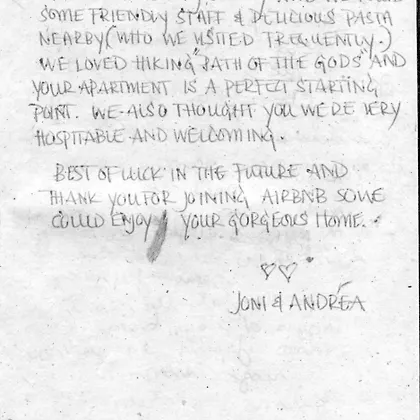 SOME FRIENDLY STAFF & DELICIOUS PASTA
NEARBY (WHO WE VISITED FREQUENTLY.)
WE LOVED HIKING "PATH OF THE GODS" AND
YOUR APARTMENT IS A PERFECT STARTING
POINT. WE ALSO THOUGHT YOU WERE VERY
HOSPITABLE AND WELCOMING.
BEST OF LUCK IN THE FUTURE AND
THANK YOU FOR JOINING AIRBNB SO WE
COULD ENJOY YOUR GORGEOUS HOME.
♡♡
JONI & ANDRÉA